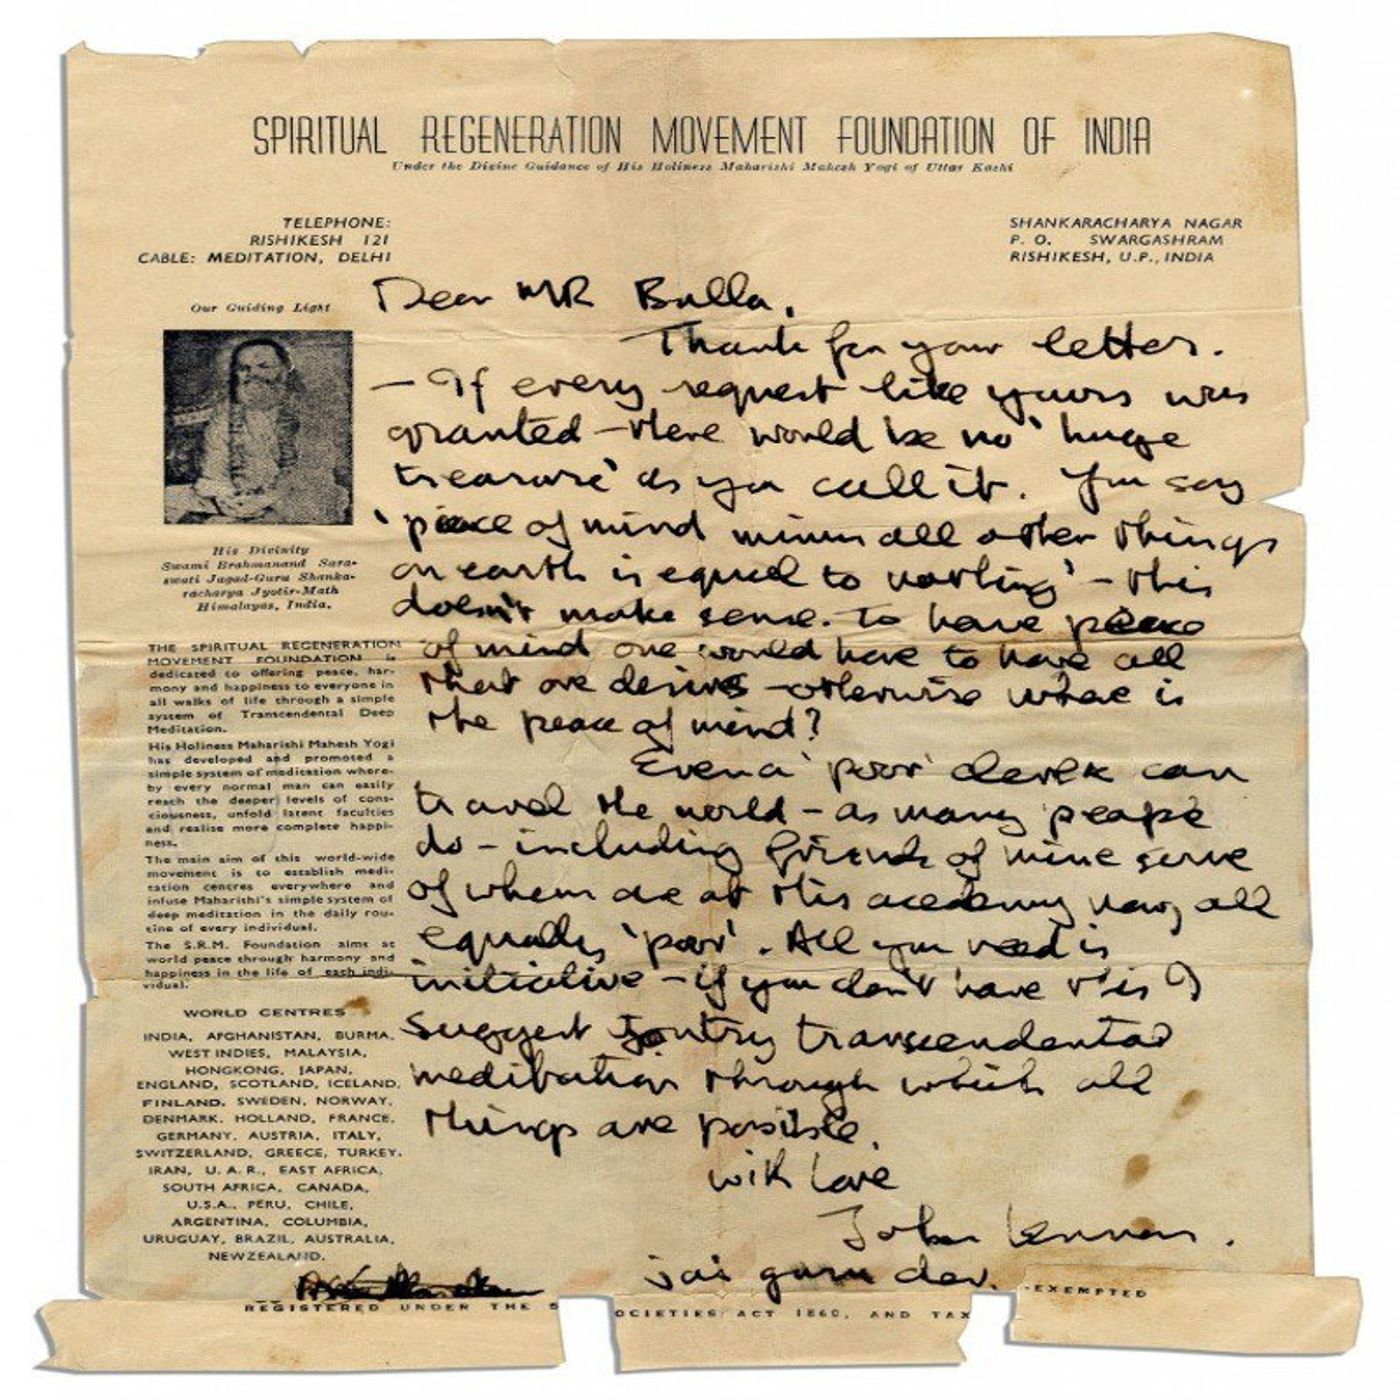 SPIRITUAL REGENERATION MOVEMENT FOUNDATION OF INDIA
Under the Divine Guidance of His Holiness Maharishi Mahesh Yogi of Uttar Kashi
TELEPHONE:
RISHIKESH 121
CABLE: MEDITATION, DELHI
SHANKARACHARYA NAGAR
P. O. SWARGASHRAM
RISHIKESH, U.P., INDIA
Our Guiding Light
His Divinity
Swami Brahmanand Sara-
swati Jagad-Guru Shanka-
racharya Jyotir-Math
Himalayas, India.
THE SPIRITUAL REGENERATION
MOVEMENT FOUNDATION is
dedicated to offering peace, har-
mony and happiness to everyone in
all walks of life through a simple
system of Transcendental Deep
Meditation.
His Holiness Maharishi Mahesh Yogi
has developed and promoted a
simple system of meditation where-
by every normal man can easily
reach the deeper levels of cons-
ciousness, unfold latent faculties
and realise more complete happi-
ness.
The main aim of this world-wide
movement is to establish medi-
tation centres everywhere and
infuse Maharishi's simple system of
deep meditation in the daily rou-
tine of every individual.
The S.R.M. Foundation aims at
world peace through harmony and
happiness in the life of each indi-
vidual.
WORLD CENTRES
INDIA, AFGHANISTAN, BURMA,
WEST INDIES, MALAYSIA,
HONGKONG, JAPAN,
ENGLAND, SCOTLAND, ICELAND,
FINLAND, SWEDEN, NORWAY,
DENMARK, HOLLAND, FRANCE,
GERMANY, AUSTRIA, ITALY,
SWITZERLAND, GREECE, TURKEY,
IRAN, U. A. R., EAST AFRICA,
SOUTH AFRICA, CANADA,
U.S.A., PERU, CHILE,
ARGENTINA, COLUMBIA,
URUGUAY, BRAZIL, AUSTRALIA,
NEWZEALAND.
Dear MR Bulla,
Thank for your letter.
- If every request like yours was
granted - there would be no 'huge
treasure' as you call it. You say
'peace of mind minus all other things
on earth is equal to nothing' - this
doesn't make sense. To have peace
of mind one would have to have all
that one desires - otherwise where is
the peace of mind?
Even a 'poor' clerk can
travel the world - as many people
do - including friends of mine some
of whom are at this academy now, all
equally 'poor'. All you need is
initiative - if you don't have this I
suggest you try transcendental
meditation through which all
things are possible.
with love
John Lennon.
jai guru dev.
REGISTERED UNDER THE S OCIETIES ACT 1860, AND TAX -EXEMPTED